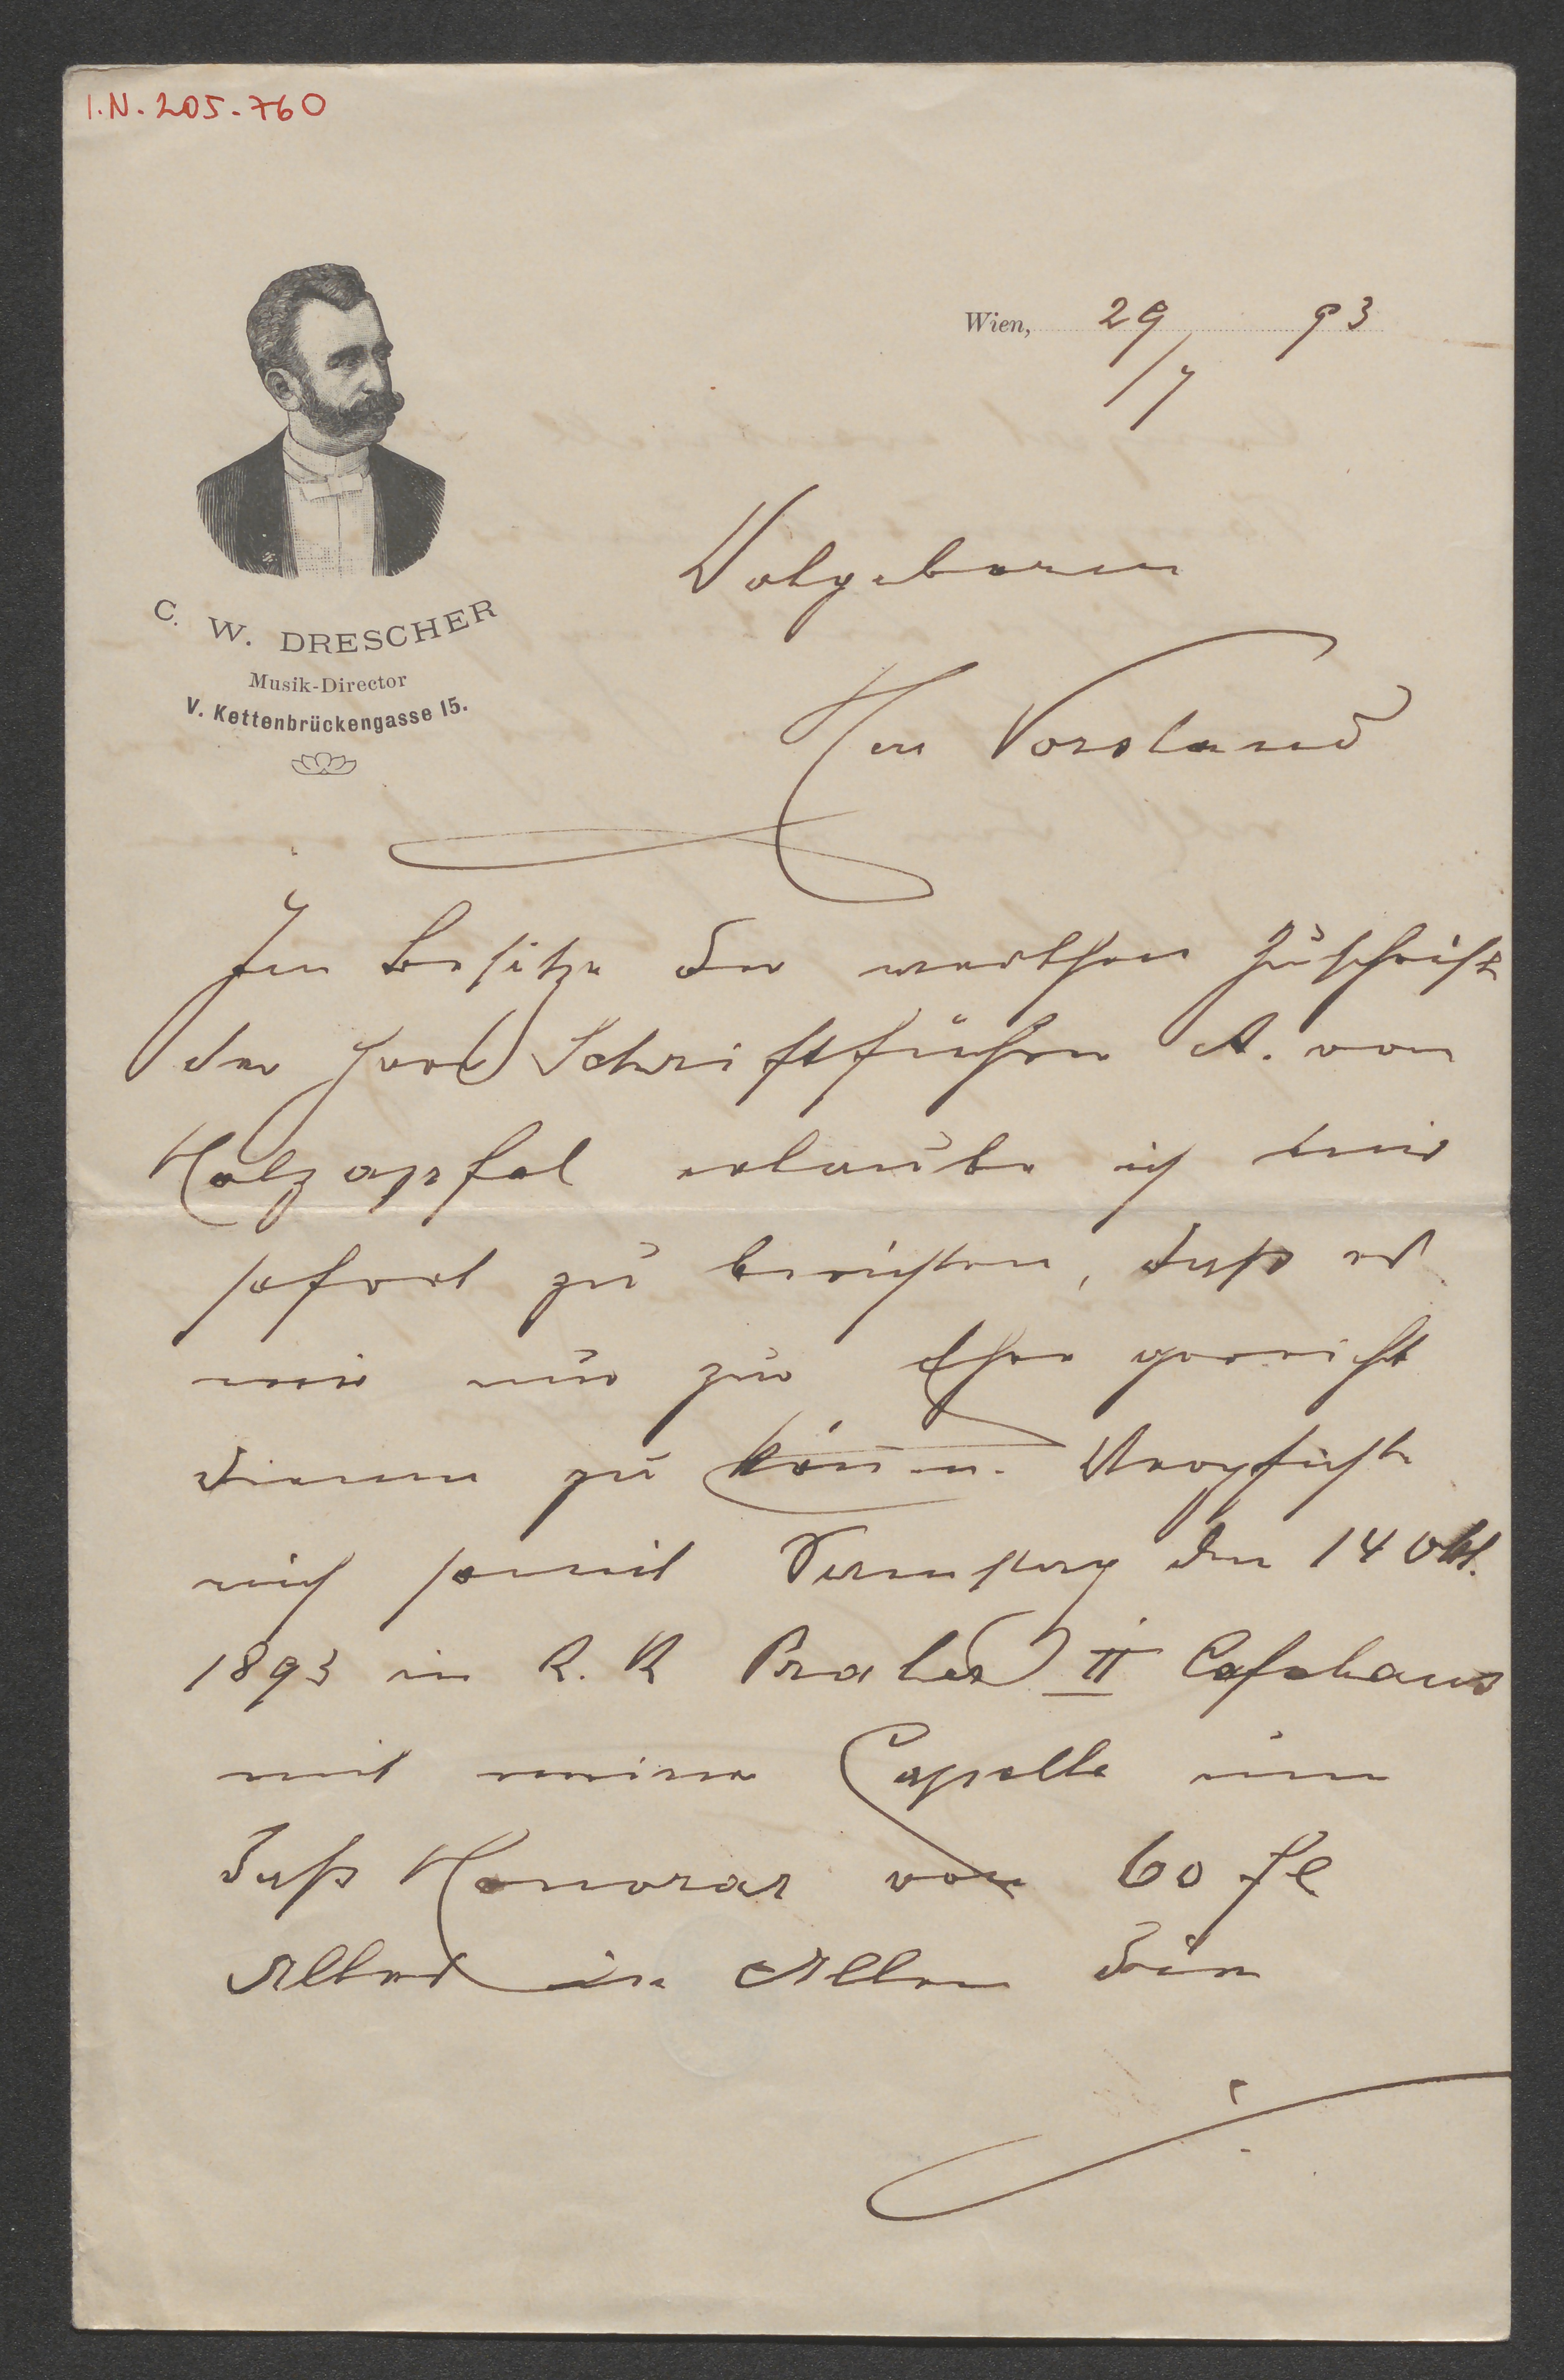 I.N. 205.760
Wien, 29/7 93
C. W. DRESCHER
Musik-Director
V. Kettenbrückengasse 15.
Wolgeboren
Herr Vorstand
Im Besitze der werthen Zuschrift
des Herrn Schriftführer A. von
Holzapfel erlaube ich mir
sofort zu berichten, daß es
mir nur zur Ehre gereicht
dienen zu können. Verpflichte
mich somit Samstag den 14 Okt.
1893 im K. K Prater II Cafehaus
mit meiner Capelle um
daß Honorar von 60 fl
Alles in Allem